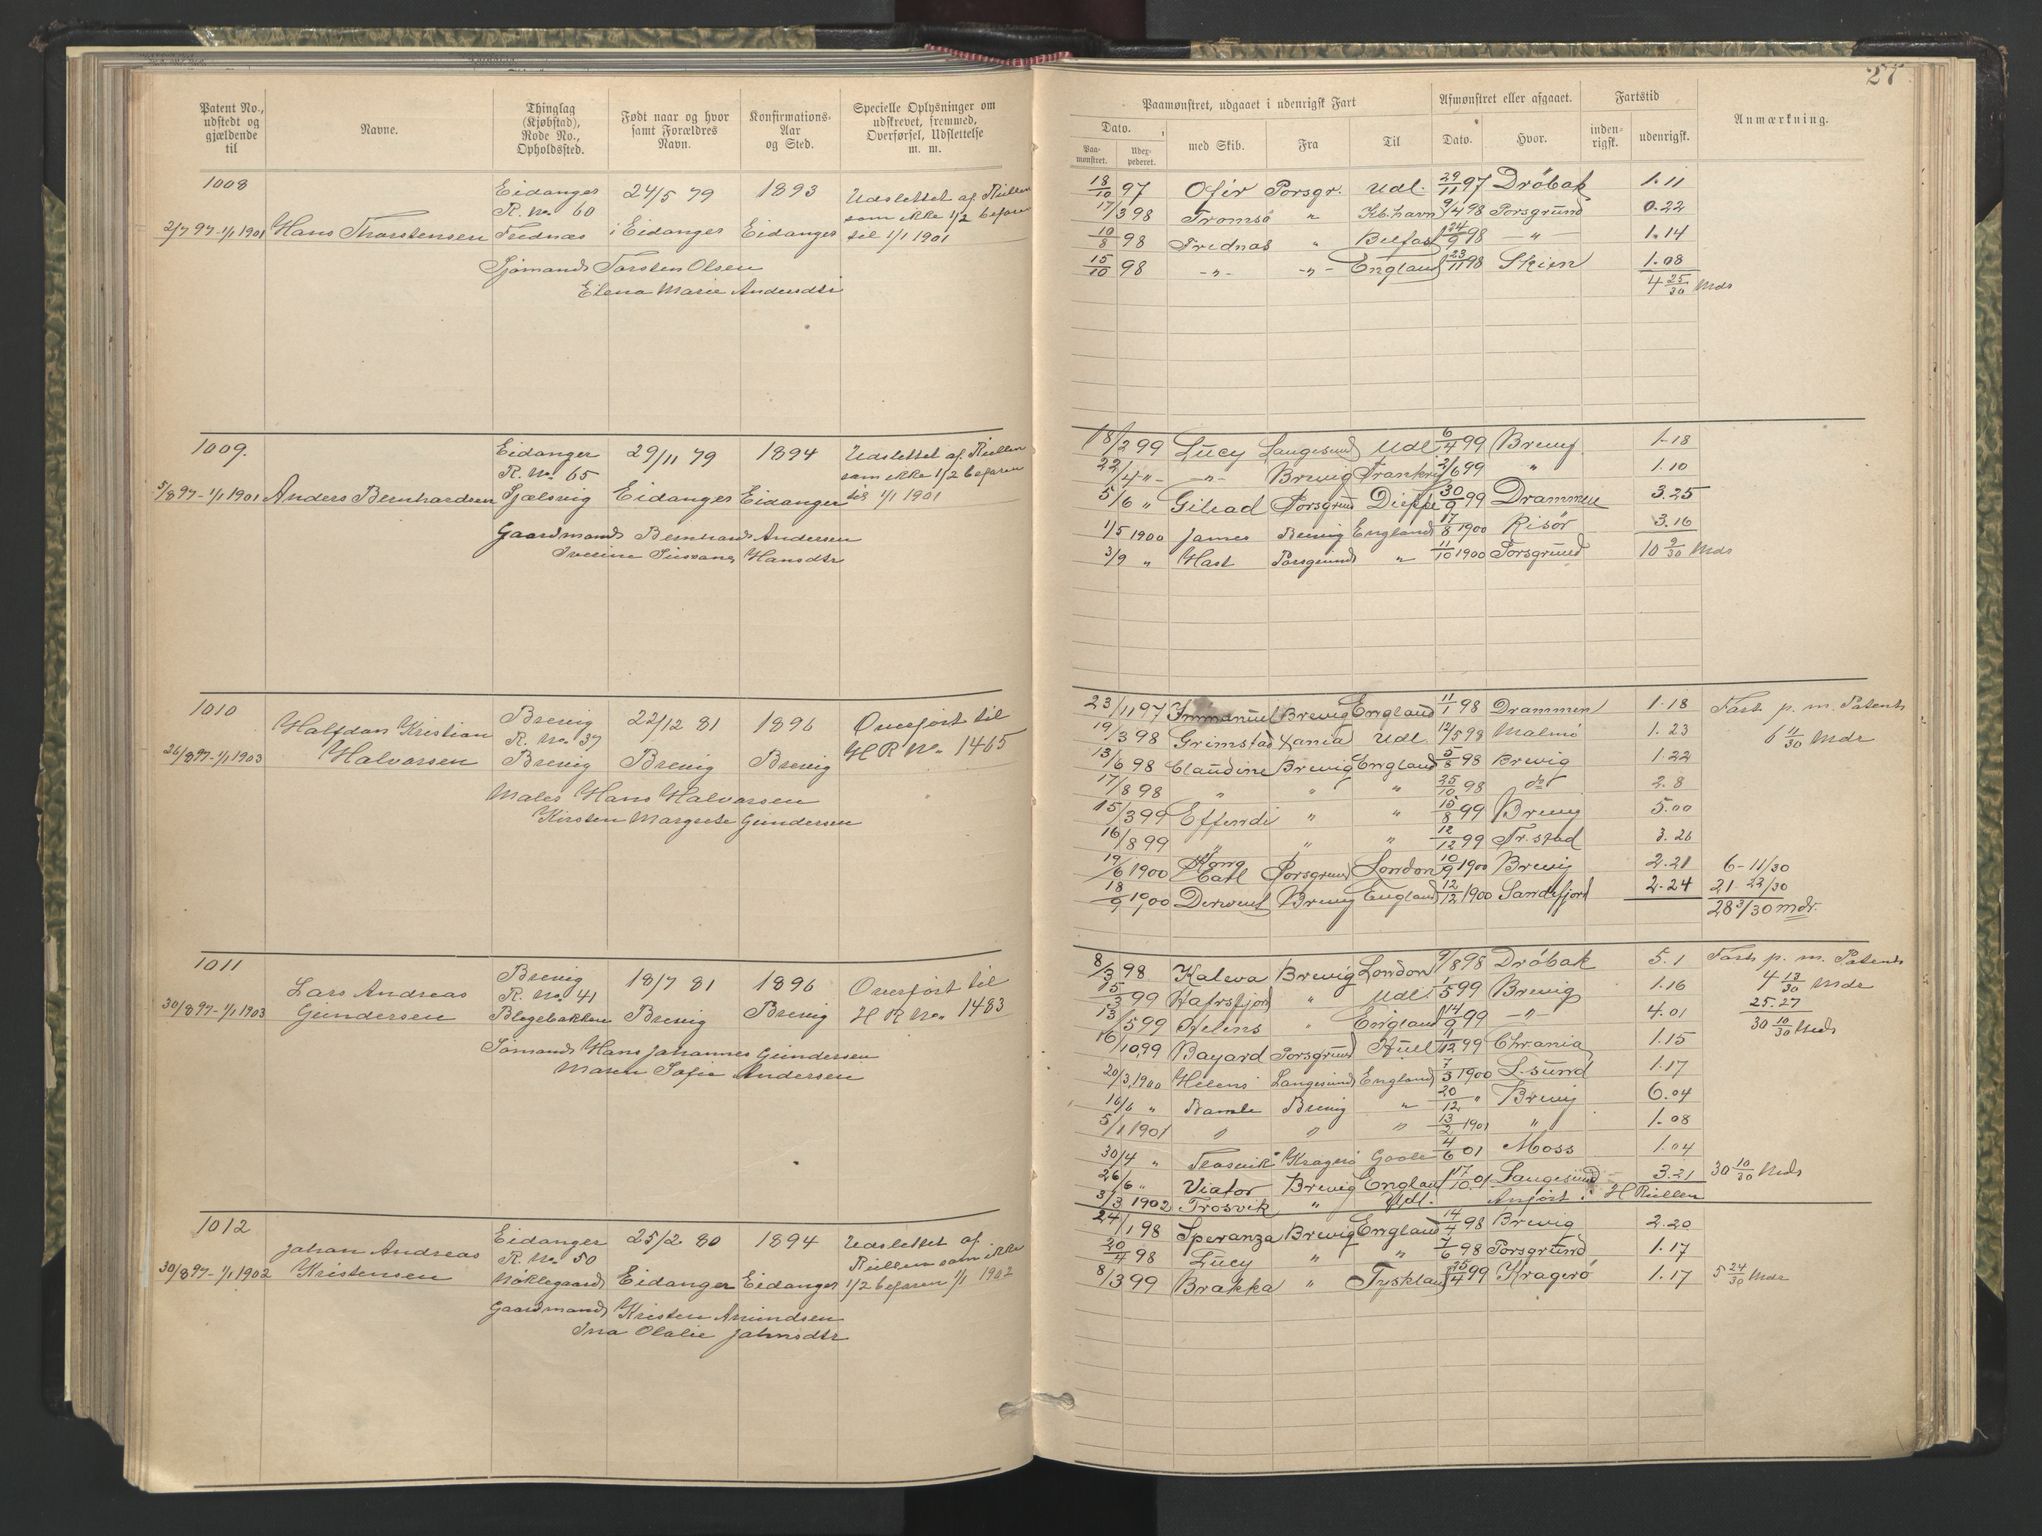 27
Patent No., udstedt og gjældende til
Navne.
Thinglag (Kjøbstad), Rode No., Opholdssted.
Født naar og hvor samt Forældres Navn.
Konfirmations-Aar og Sted.
Specielle Oplysninger om udskrevet, fremmed, Overførsel, Udslettelse m. m.
Paamønstret, udgaaet i udenrigsk Fart
Afmønstret eller afgaaet.
Fartstid
Anmærkning.
Dato.
Paa-mønstret.
Udex-pederet.
med Skib.
Fra
Til
Dato.
Hvor.
inden-rigsk.
udenrigsk.
1008 Eidanger 24/5 79 1893 Udslettet af Rullen
R. No 60 som ikke 1/2 befaren
2/7 97-1/1 1901 Hans Thorstensen Frednæs i Eidanger Eidanger til 1/1 1901
Sjømand Torsten Olsen
Elena Marie Andersdtr
18/10 97 Ofir Porsgr. Udl. 29/11 97 Drøbak 1.11
17/3 98 Tromsø " Kb.havn 9/4 98 Porsgrund 0.22
10/8 98 Frednæs " Belfast 24/9 98 -"- 1.14
15/10 98 -"- -"- England 23/11 98 Skien 1.08
4 25/30 Mds
1009. Eidanger 29/11 79 1894 Udslettet af Rullen
R. No 65 som ikke 1/2 befaren
5/8 97-1/1 1901 Anders Bernhardsen Sjælsvig Eidanger Eidanger til 1/1 1901
Gaardmand Bernhard Andersen
Hansdtr
18/2 99 Lucy Langesund Udl 6/4 99 Brevig 1.18
22/4 "- -"- Brevig Frankrig 2/6 99 " 1.10
5/6 " Gilead Porsgrund Dieppe 30/9 99 Drammen 3.25
1/5 1900 James Brevig England 17/8 1900 Risør 3.16
3/9 " Hast Porsgrund " 11/10 1900 Porsgrund 10 9/30 Mds
1010 Halfdan Kristian Brevig 22/12 81 1896 Overført til
R. No 37 H R No 1465
26/8 97-1/1 1903 Halvorsen Brevig Brevig Brevig
Maler Hans Halvorsen
Kirsten Margrete Gundersen
23/11 97 Immanuel Brevig England 11/1 98 Drammen 1.18 Fart p. m. Patents
19/3 98 Grimstad Xania Udl. 12/5 98 Malmø 1.23 6 11/30 Mdr
13/6 98 Claudine Brevig England 5/8 98 Brevig 1.22
17/8 98 " " " 25/10 98 do 2.8
15/3 99 Effendi " " 15/8 99 Brevig 5.00
16/8 99 " " " 12/12 99 Fr.stad 3.26
19/6 1900 Kong Carl Porsgrund London 10/9 1900 Brevig 2.21 6-11/30
18/9 1900 Derwent Brevig England 12/12 1900 Sandefjord 2.24 21-22/30
28 3/30 mdr.
1011 Lars Andreas Brevig 18/7 81 1896 Overført til
R. No 41 H R No 1483
30/8 97-1/1 1903 Gundersen Blegebakken Brevig Brevig
Sømand Hans Johannes Gundersen
Maren Sofie Andersen
8/3 98 Kaleva Brevig London 9/8 98 Drøbak 5.1 Fart p. m. Patents
15/3 99 Hafrsfjord " Udl. 1/5 99 Brevig 1.16 4 13/30 Mdr
13/5 99 Helens " England 14/9 99 -"- 4.01 25.27
16/10 99 Bayard Porsgrund Hull 1/12 99 Chr.ania 1.15 30 10/30 Mds
20/3 1900 Helens Langesund England 7/3 1900 L.sund 1.17
16/6 " Bamle Brevig " 20/12 " Brevig 6.04
5/1 1901 " " " 13/2 1901 " 1.08
30/4 " Trosvik Kragerø Goole 4/6 01 Moss 1.04
26/6 " Viator Brevig England 17/10 01 Langesund 3.21 30 10/30 Mds
3/3 1902 Trosvik " Udl. Anført i H Rullen
1012 Johan Andreas Eidanger 25/2 80 1894 Udslettet af
R. No 50 Rullen som ikke
30/8 97-1/1 1902 Kristensen Nøklegaard Eidanger Eidanger 1/2 befaren 1/1 1902
Gaardmand Kristen Amundsen
Ina Olalie Johnsdtr
24/1 98 Speranza Brevig England 14/4 98 Brevig 2.20
20/4 98 Lucy " " 7/6 98 Porsgrund 1.17
8/3 99 Brakka " Tyskland 25/4 99 Kragerø 1.17 5 24/30 Mdr